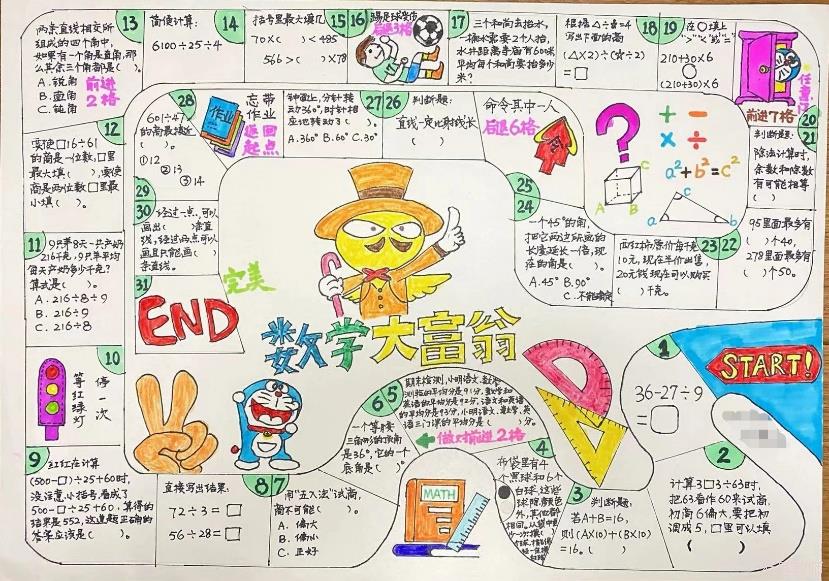 数学大富翁
START!
1
36-27÷9
=□
2
计算3□3÷63时,
把63看作60来试商,
初商6偏大,要把初
调成5,□里可以填
(    )
3
判断题:
若A+B=16,
则(A×10)+(B×10)
=16。(    )
4
布袋里有4
个黑球和6个
白球,这些
球除颜色
外,其他都
相同。
5
期末检测,小明语文、数学
英语三门课的平均分是(    )分。
做对前进2格
6
一个等腰
三角形的顶角
是36°,它的一个
底角是(    )
7
用"五入法"试商,
商不可能(    )
A. 偏大
B. 偏小
C. 正好
MATH
8
直接写出结果:
72÷3=□
56÷28=□
9
红红在计算
(500-□)÷25+60时,
没注意小括号,看成了
500-□÷25+60,算得的
结果是552,这道题正确的
答案应该是(    )。
10
等红绿灯
停一次
11
9只养8天一共产奶
216千克,9只羊平均
每天产奶多少千克?
算式是(    )。
A. 216÷8÷9
B. 216÷9
C. 216÷8
12
要使□16÷61
的商是一位数,□里
最大填(    ),要使
商是两位数□里最
小填(    )。
13
两条直线相交所
组成的四个角中,
如果有一个角是直角,那
么其余三个角都是(    )
A. 锐角
B. 直角
C. 钝角
前进
2格
14
简便计算:
6100÷25÷4
15
括号里最大填几
70×(    )<485
566>(    )×78
16
踢足球受伤
后退3格
17
三个和尚去抬水,
一桶水需要2个人抬,
水井距离寺庙有60米
平均每个和尚要抬多少
米?
18
根据△÷☆=4
写出下面的商
(△×2)÷(☆÷2)
=□
19
在○填上
">""<"或"="
210+30×6
○
(210+30)×6
任意门
前进7格
20
21
判断题:
除法计算时,
余数和除数
有可能相等
(    )
22
95里面最多有
(    )个40,
278里面最多有
(    )个50。
23
西红柿原价每千克
10元,现在半价出售,
20元钱现在可以购买
(    )千克。
24
一个45°的角,
把它两边所画的
长度延长一倍,现
在的角是(    )。
A.45° B.90°
C.不能确定
25
命令其中一人
后退6格
?
+ −
× ÷
a²+b²=c²
A
B
C
a
b
c
26
判断题:
直线一定比射线长
(    )
27
钟面上,分针转
动360°,时针相
应地转动(    )
A.360° B.60° C.30°
28
忘带
作业
返回
起点
作业
29
601÷47
的商最接近
(    )。
①12
②13
③14
30
经过一点,可以
画出(    )条直
线,经过两点可以
画且只能画(    )
条直线。
31
END
完美